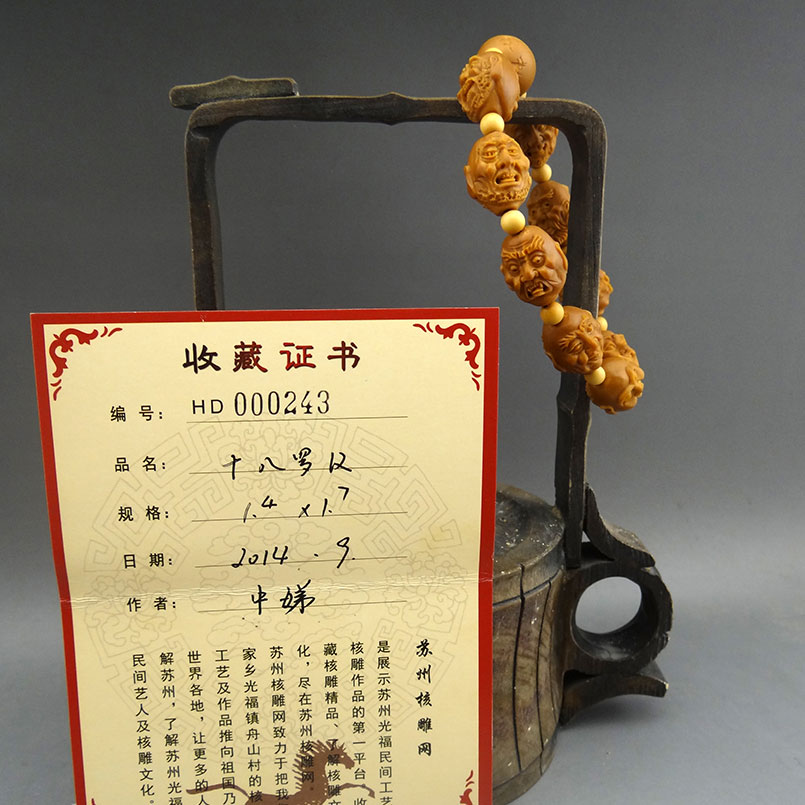 收藏证书
编号: HD 000243
品名: 十八罗汉
规格: 1.4 x 1.7
日期: 2014.9.
作者: 中娣
苏州核雕网
是展示苏州光福民间工艺
核雕作品的第一平台,收
藏核雕精品、了解核雕文
化,尽在苏州核雕网。
苏州核雕网致力于把我
家乡光福镇舟山村的核
工艺及作品推向祖国乃
世界各地,让更多的人
解苏州,了解苏州光福
民间艺人及核雕文化。